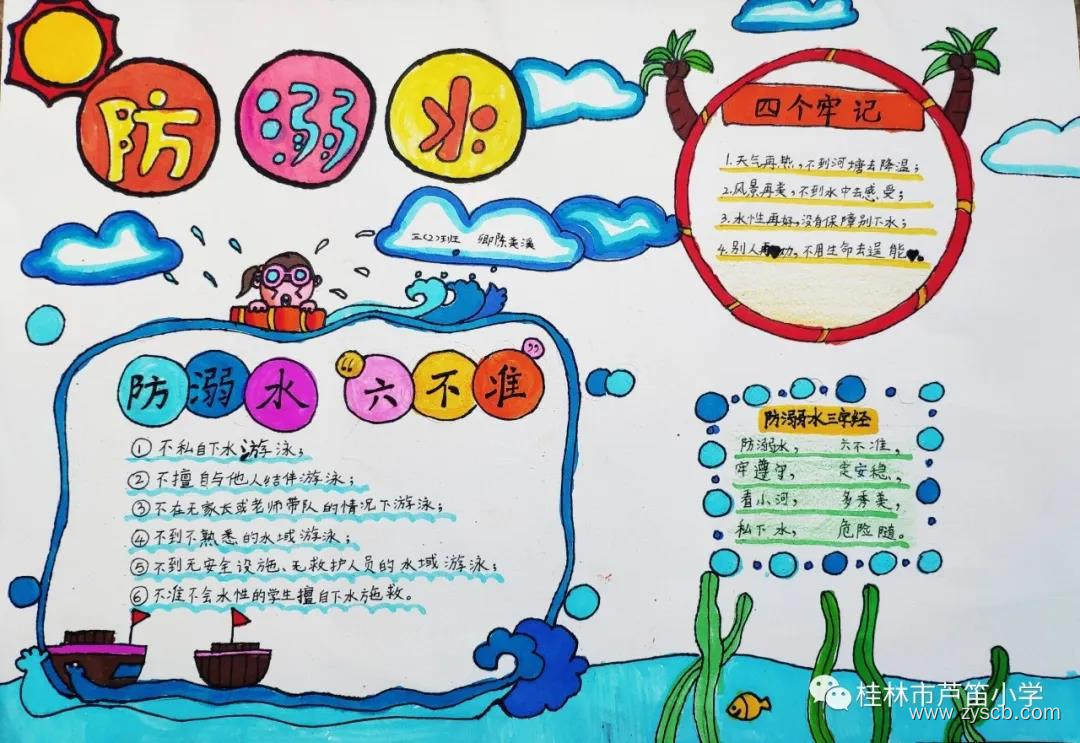 防溺水
三(2)班 卿陈美溪
四个牢记
1.天气再热,不到河塘去降温;
2.风景再美,不到水中去感受;
3.水性再好,没有保障别下水;
4.别人再 劝,不用生命去逞能 。
防溺水 “六不准”
①不私自下水游泳;
②不擅自与他人结伴游泳;
③不在无家长或老师带队的情况下游泳;
④不到不熟悉的水域游泳;
⑤不到无安全设施、无救护人员的水域游泳;
⑥不准不会水性的学生擅自下水施救。
防溺水三字经
防溺水, 六不准,
牢遵守, 定安稳,
看小河, 多秀美,
私下水, 危险随。
桂林市芦笛小学
www.zyscb.com